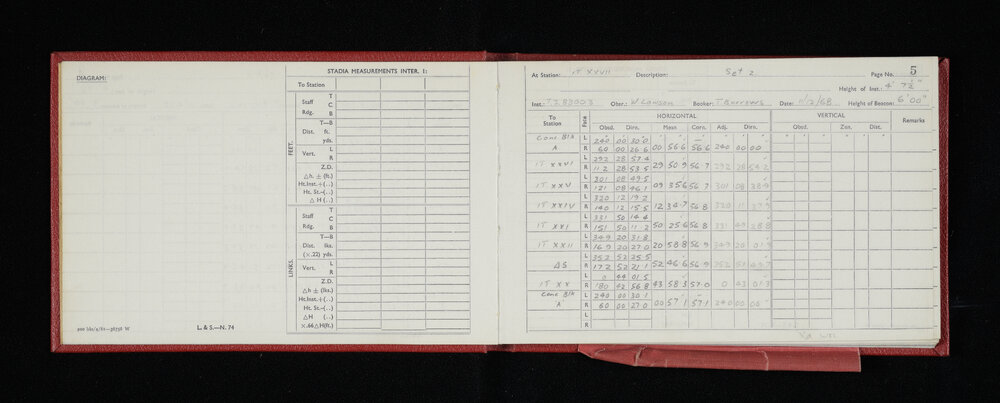 DIAGRAM:
STADIA MEASUREMENTS INTER. 1:
To Station
FEET.
Staff T
C
Rdg. B
T—B
Dist. ft.
yds.
Vert. L
R
Z.D.
△h. ± (ft.)
Ht.Inst.+(..)
Ht. St.—(..)
△ H (..)
LINKS.
Staff T
C
Rdg. B
T—B
Dist. lks.
(×.22) yds.
Vert. L
R
Z.D.
△h ± (lks.)
Ht.Inst.+(..)
Ht. St.—(..)
△H (..)
×.66△H(ft.)
L. & S.—N. 74
At Station: IT XXVII Description: Set 2 Page No. 5
Height of Inst.: 4' 7½"
Inst.: T2.83003 Obsr.: W Lawson Booker: T. Burrows Date: 11/2/68 Height of Beacon: 6' 00"
To Station Face HORIZONTAL VERTICAL Remarks
Obsd. Dirn. Mean Corn. Adj. Dirn. Obsd. Zen. Dist.
Conc Blk L 240 00 30.0
A R 60 00 26.6 00 56.6 56.6 240 00 00
L 292 28 57.4
IT XXVI R 112 28 53.5 29 50.9 56.7 292 28 54.2
L 301 08 49.5
IT XXV R 121 08 46.1 09 35.6 56.7 301 08 38.9
L 320 12 19.2
IT XXIV R 140 12 15.5 12 34.7 56.8 320 11 37.9
L 331 50 14.4
IT XXI R 151 50 11.2 50 25.6 56.8 331 49 28.8
L 349 20 31.8
IT XXII R 169 20 27.0 20 58.8 56.9 349 20 01.9
L 352 52 25.5
△S R 172 52 21.1 52 46.6 56.9 352 51 49.7
L 0 44 01.5
IT XX R 180 42 56.8 43 58.3 57.0 0 43 01.3
Conc Blk L 240 00 30.1
A R 60 00 27.0 00 57.1 57.1 240 00 00
L
R